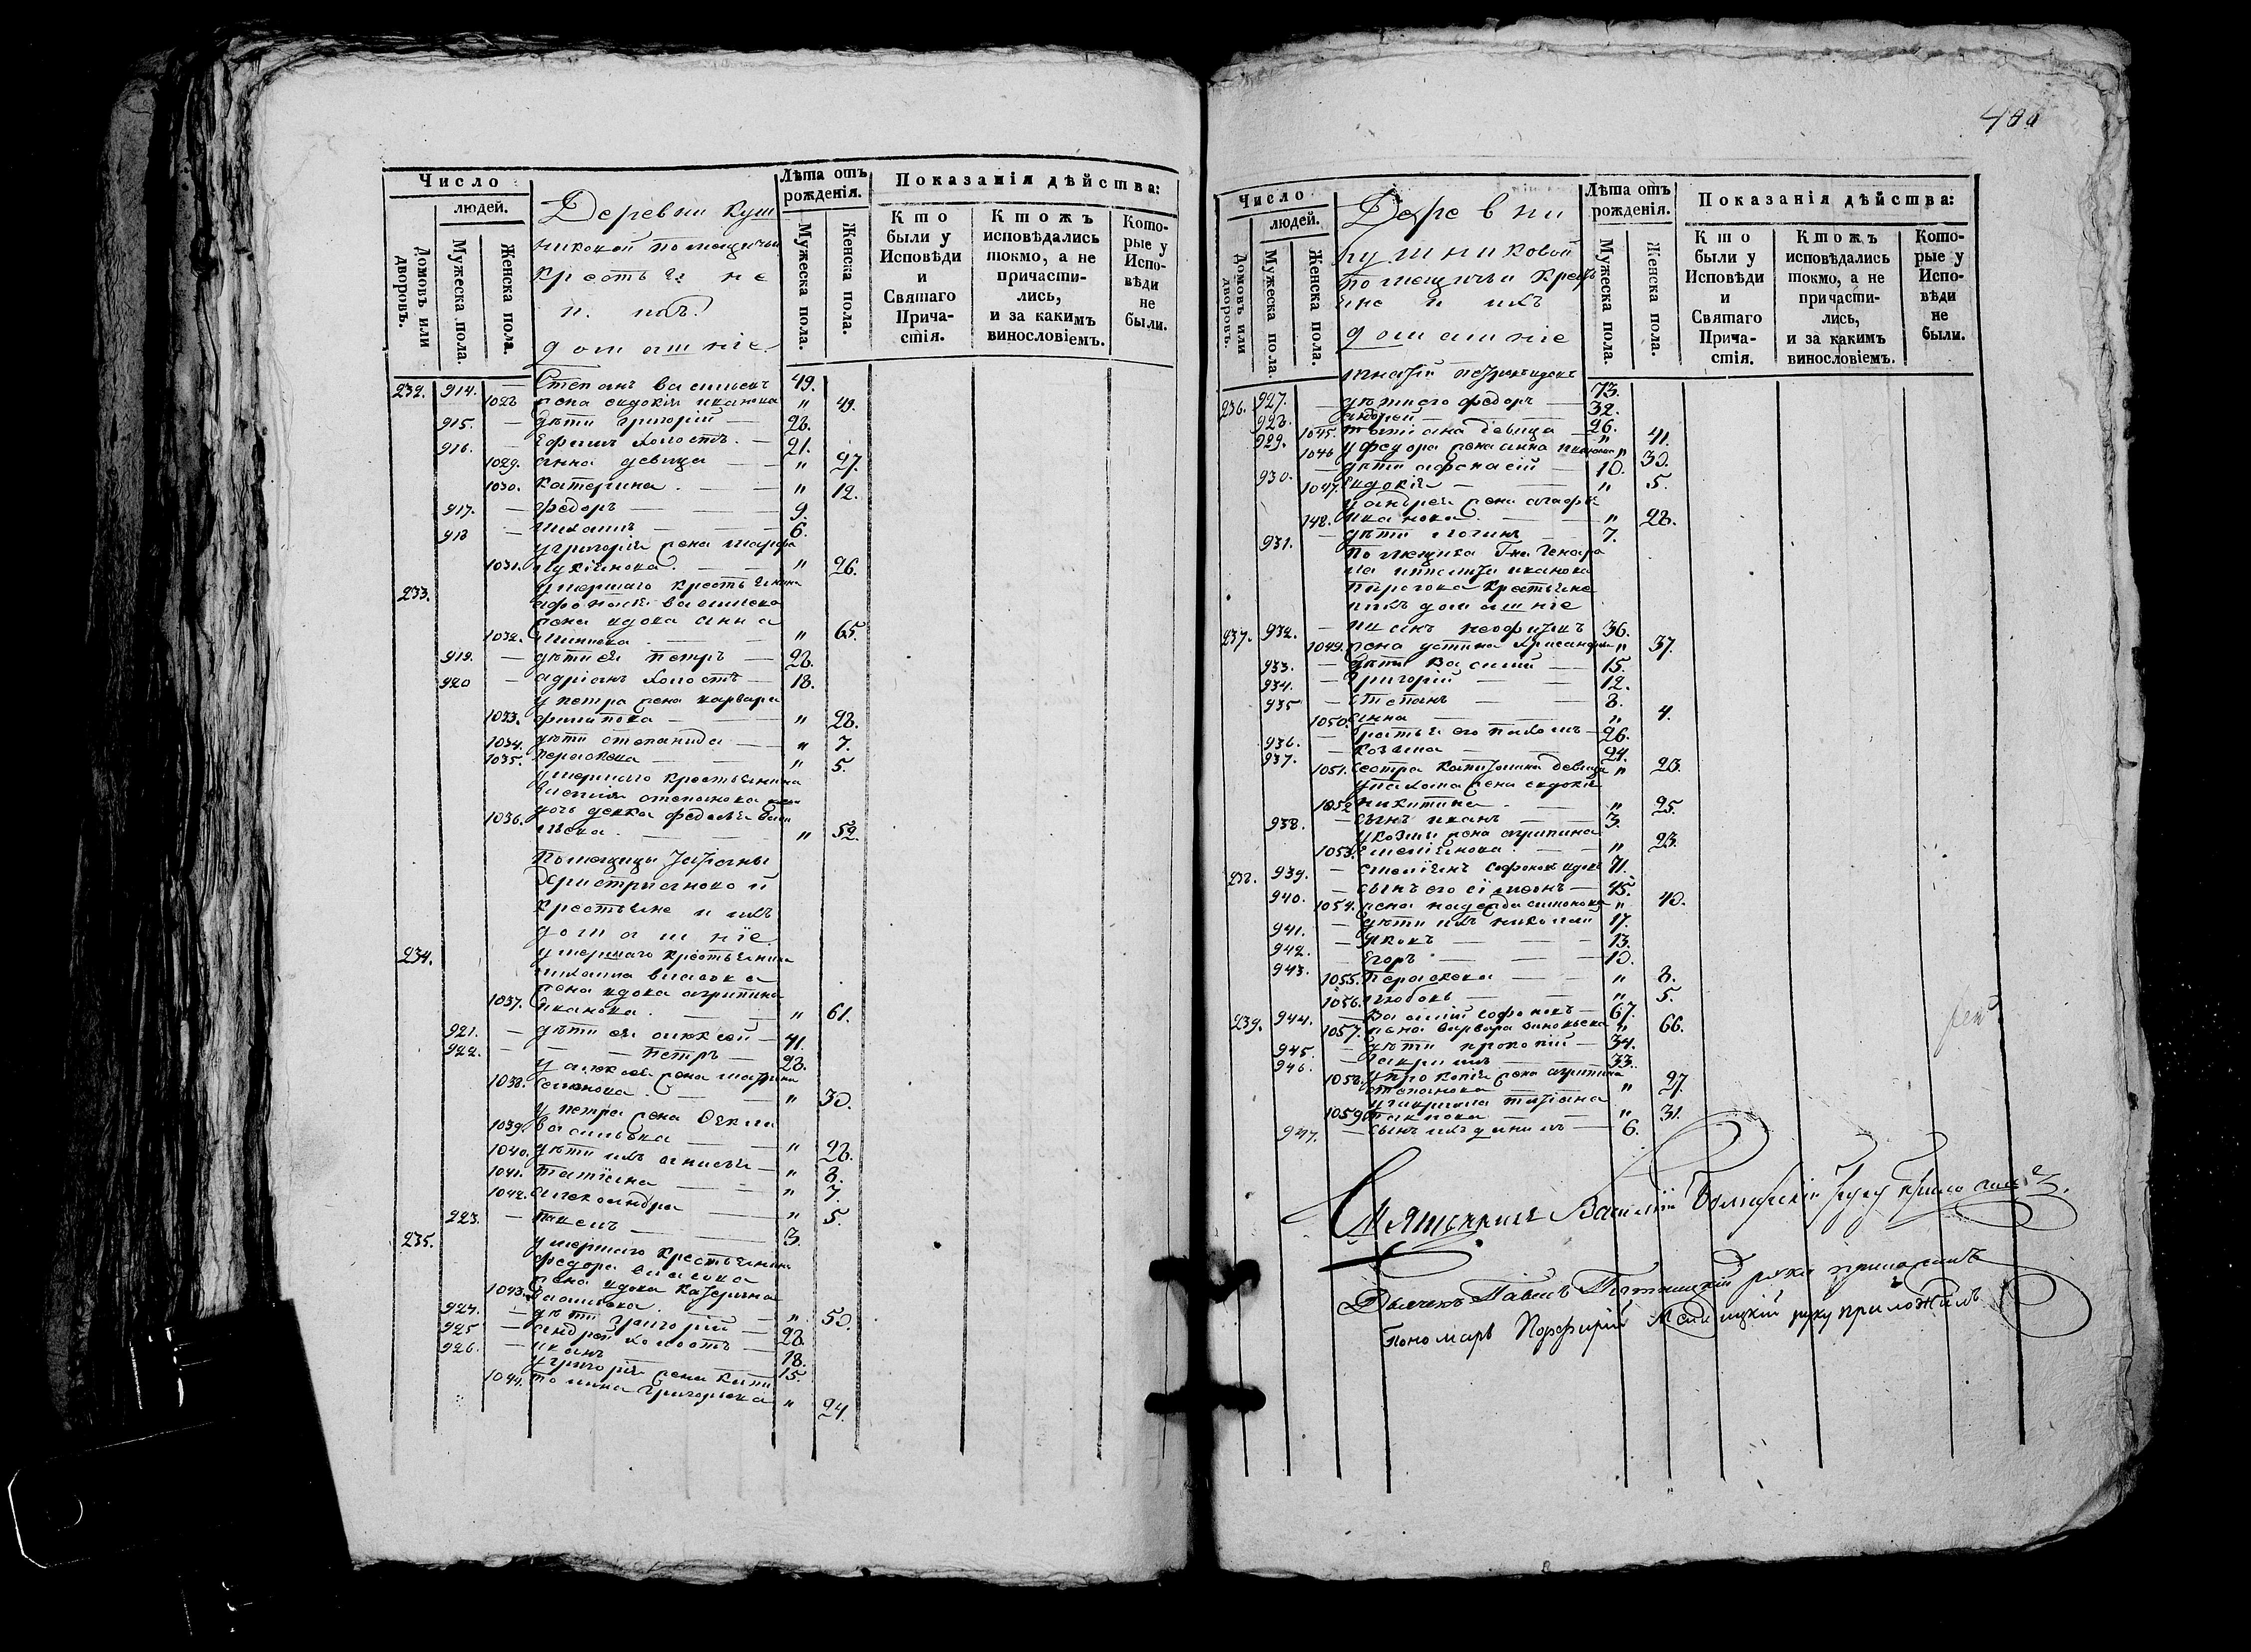 Число
людей.
Домовъ или дворовъ.
Мужеска пола.
Женска пола.
Деревни Куш
никовой помещичьи
крестьяне
и ихъ
домашніе.
Лѣта отъ рожденія.
Мужеска пола.
Женска пола.
Показанія дѣйства:
Кто были у Исповѣди и Святаго Причастія.
Ктожъ исповѣдались токмо, а не причастились, и за какимъ винословіемъ.
Которые у Исповѣди не были.
232. 914. — Степанъ васильевъ 49.
1028 жена евдокія иванова " 49.
915. — дѣти григорій — 28.
916. — Ефимъ холостъ. — 21.
1029. анна девица — " 27.
1030. катерина. — " 12.
917. — федоръ — 9.
918 — михаилъ — 6.
у григорія жена марфа
1031. лукіянова. — " 26.
233. умершаго крестьянина
афонасія васильева
жена вдова анна
1032. — " 65.
919. — дѣти ея петръ — 28.
920 — адріанъ холостъ — 18.
у петра жена варвара
1033. филипова — " 28.
1034. дѣти степанида — " 7.
1035. параскева — " 5.
умершаго крестьянина
степанова
1036. дочь девка федосья
" 52.
Помещицы Татіаны
крестьяне и ихъ
домашніе.
234. умершаго крестьянина
михаила власова
жена вдова агрипина
1037. иванова. — " 61.
921. — дѣти ея алексей — 41.
922. — — петръ — 28.
у алексея жена марина
1038. семенова. — " 30.
у петра жена Ѳекла
1039. васильева — " 28.
1040. дѣти ихъ анисья — " 8.
1041. татіяна — " 7.
1042. александра — " 5.
923. — павелъ — 3.
235. умершаго крестьянина
федора власова
жена вдова катерина
1043. васильева. — " 50.
924. — дѣти григорій — 28.
925 — андрей холостъ — 18.
926. — иванъ — 15.
у григорія жена кате
1044. григорьева " 24.
400
Число
людей.
Домовъ или дворовъ.
Мужеска пола.
Женска пола.
Деревни
Кушниковой
помещичьи крест
яне и ихъ
домашніе
Лѣта отъ рожденія.
Мужеска пола.
Женска пола.
Показанія дѣйства:
Кто были у Исповѣди и Святаго Причастія.
Ктожъ исповѣдались токмо, а не причастились, и за какимъ винословіемъ.
Которые у Исповѣди не были.
236. 927. игнатій петровъ вдовъ 73.
928. — дѣти его федоръ — 32.
929. — андрей — 26.
1045. татіана девица — " 41.
1046 у федора жена анна иванова " 30.
930. — дѣти афонасій — 10.
1047. евдокія — " 5.
у андрея жена агафья
148. иванова. — " 28.
931. — дѣти логинъ — 7.
помещика Гна Генера
ла иванова
крестьяне
и ихъ домашніе
237. 932. — иванъ 36.
1049. жена устина " 37.
933. — дѣти василій — 15.
934. — григорій — 12.
935 — степанъ — 8.
1050. анна — " 4.
936. — братья его пахомъ — 26.
937. — козьма — 24.
1051. сестра катерина девица " 23.
у пахома жена евдокія
1052 никитина. — " 25.
938. — сынъ иванъ — 3.
у козмы жена агрипина
1053. емеліянова. — " 23.
238. 939. — емеліянъ софоновъ вдовъ 71.
940. — сынъ его сімеонъ — 45.
1054. жена надежда " 40.
941. — дѣти ихъ николай 17.
942. — яковъ — 13.
943. — Егоръ — 10.
1055. параскева — " 8.
1056. любовь — " 5.
239. 944. — василій софоновъ — 67.
1057. жена варвара зиновьева " 66.
945. — дѣти прокопій — 34.
946. — гаврилъ — 33.
1058. у прокопія жена агрипина
степанова " 27.
у гаврила татіана
1059. " 31.
947. — сынъ ихъ данилъ — 6.
Священникъ Василій руку приложилъ.
Дьячекъ Павелъ руку приложилъ
Пономарь Порфирій руку приложилъ